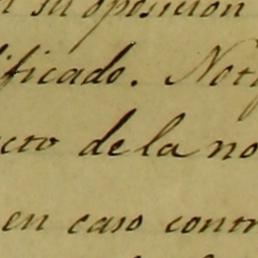 su oposición
ificado. Noti
ecto de la no
en caso contr